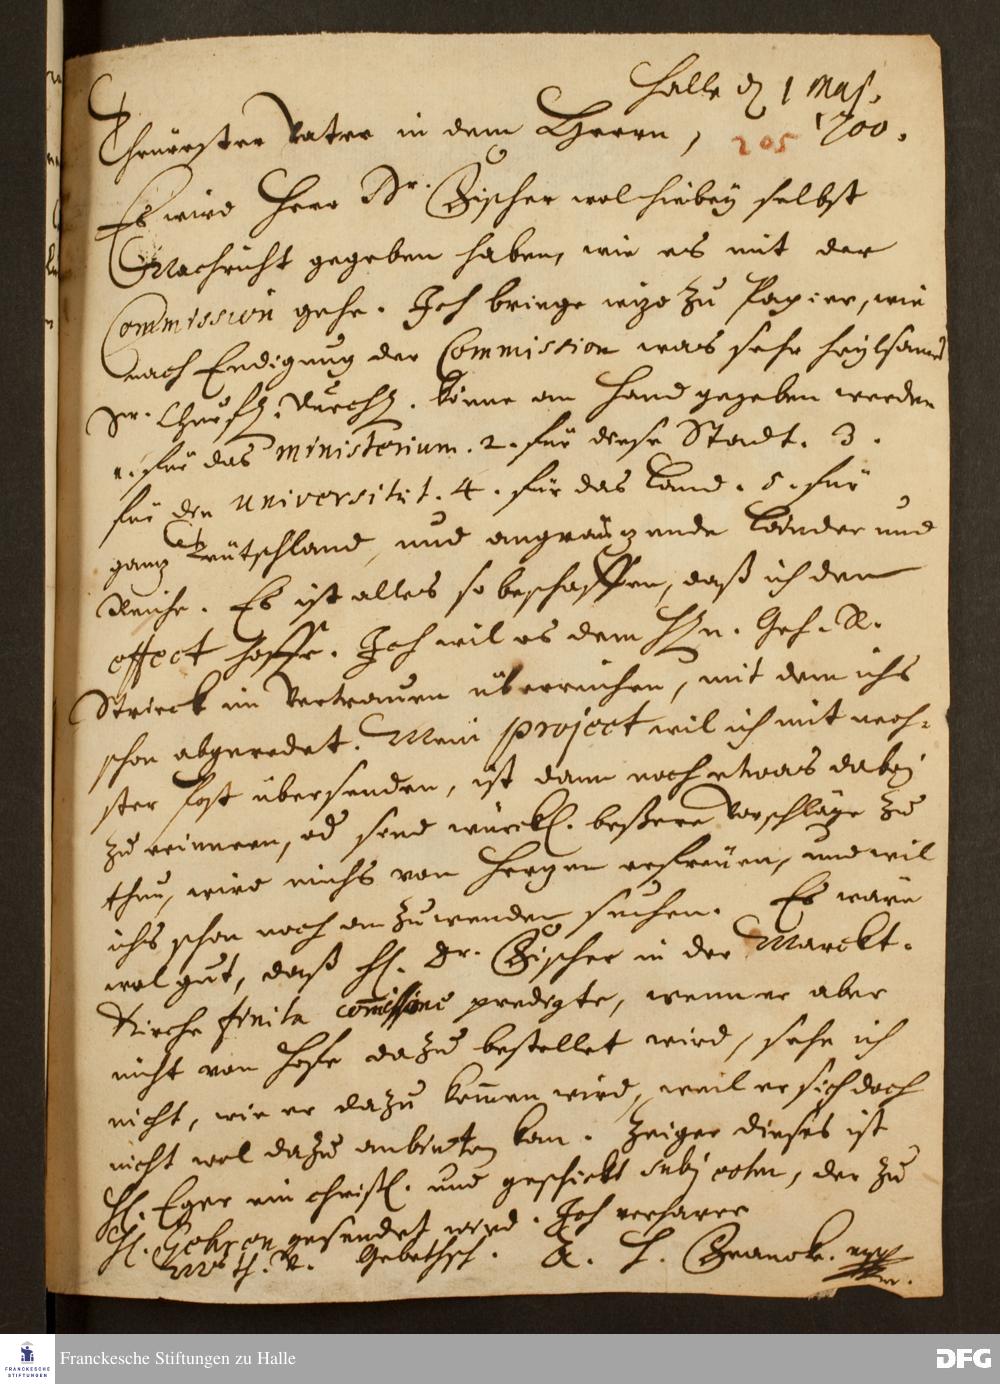 Halle d 1 Maj.
Theurester Vater in dem Herrn, 205 1700.
Es wird Herr Dr. Fischer wol hiebey selbst
Nachricht gegeben haben, wie es mit der
Commission gehe. Ich bringe itzo zu Papier, wie
nach Endigung der Commission was sehr heylsames
Sr. Churfl. Durchl. könne an Hand gegeben werden
1. für das ministerium. 2. für diese Stadt. 3.
für die universität. 4. für das Land. 5. für
gantz Teütschland, und angräntzende Länder und
Reiche. Es ist alles so beschaffen, daß ich den
effect hoffe. Ich wil es dem Hn. Geh. R.
Strieck im Vertrauen überreichen, mit dem ichs
schon abgeredet. Mein project wil ich mit nech-
ster Post übersenden, ist dann noch etwas dabey
zu erinnern, od sind würckl. beßere Vorschläge zu
thun, wird michs von Hertzen erfreüen, und wil
ichs schon noch anzuwenden suchen. Es wäre
wol gut, daß H. Dr. Fischer in der Marckt-
Kirche finita comissione predigte, wenn er aber
nicht von Hofe dazu bestellet wird, sehe ich
nicht, wie er dazu kommen wird, weil er sich doch
nicht wol dazu anbieten kan. Zeiger dieses ist
H. Eger ein christl. und geschickt subjectum, der zu
H. gesendet wird. Ich verharre
Ms th. V. Gebethsch. A. H. Franck.